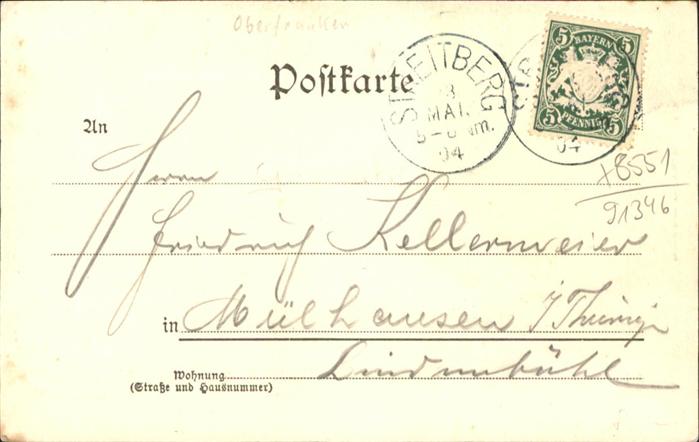 Oberfranken
Postkarte
STREITBERG
3
MAI.
5-6 Nm.
04
04
5 BAYERN 5
5 PFENNIG 5
An
Herrn
+8551
91346
Friedrich Kellermeier
in Mülhausen i/Thüringen
Lindenbühl
Wohnung
(Straße und Hausnummer)